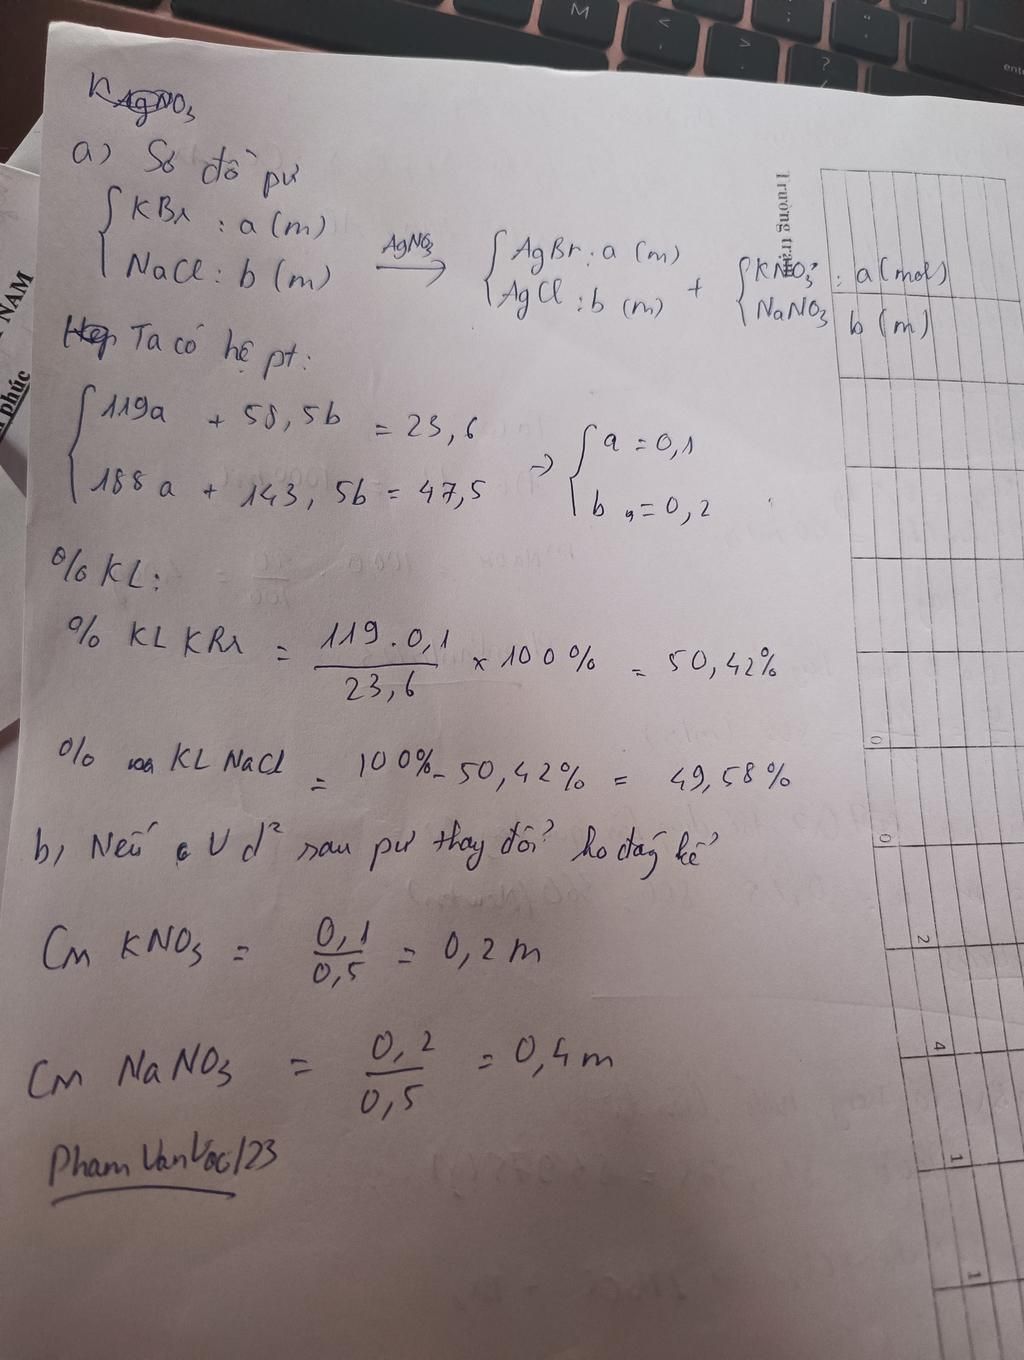 a) Sơ đồ pư
{ KBr : a (m)
NaCl : b (m)
AgNO3
→
{ AgBr : a (m)
AgCl : b (m)
+
{ KNO3 : a (mol)
NaNO3 b (m)
Ta có hệ pt:
{ 119a + 58,5b = 23,6
188a + 143,5b = 47,5
=> { a = 0,1
b = 0,2
% KL:
% KL KBr = 119.0,1 / 23,6 x 100% = 50,42%
% KL NaCl = 100% - 50,42% = 49,58%
b, Nếu V d² sau pư thay đổi ko đág kể
CM KNO3 = 0,1 / 0,5 = 0,2 m
CM NaNO3 = 0,2 / 0,5 = 0,4 m
NAM
phúc
Trường
0
0
2
4
1
1
M
<
,
>
.
?
/
:
;
"
'